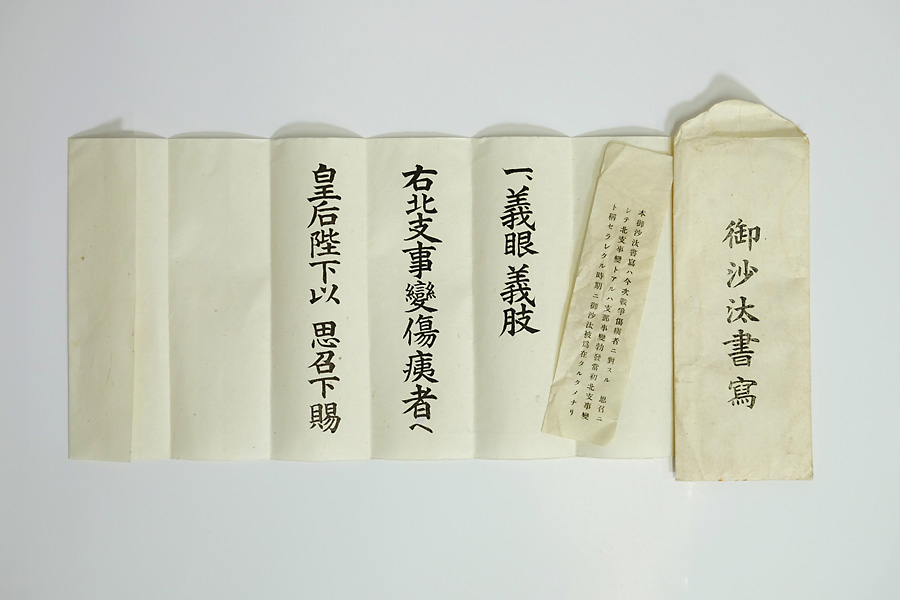 御沙汰書寫
本御沙汰書寫ハ今次戰爭傷痍者ニ對スル 思召ニ
シテ北支事變トアルハ支那事變勃發當初北支事變
ト稱セラレタル時期ニ御沙汰被爲在タルタメナリ
一、義眼義肢
右北支事變傷痍者へ
皇后陛下以 思召下賜